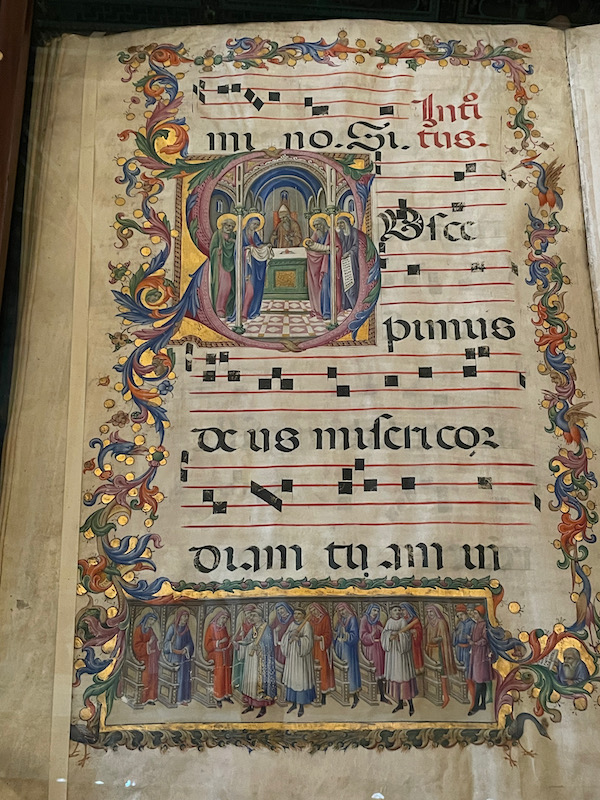 Introi
mi no. Si. tus.
SUsce
pimus
de us misericor
diam tu am in